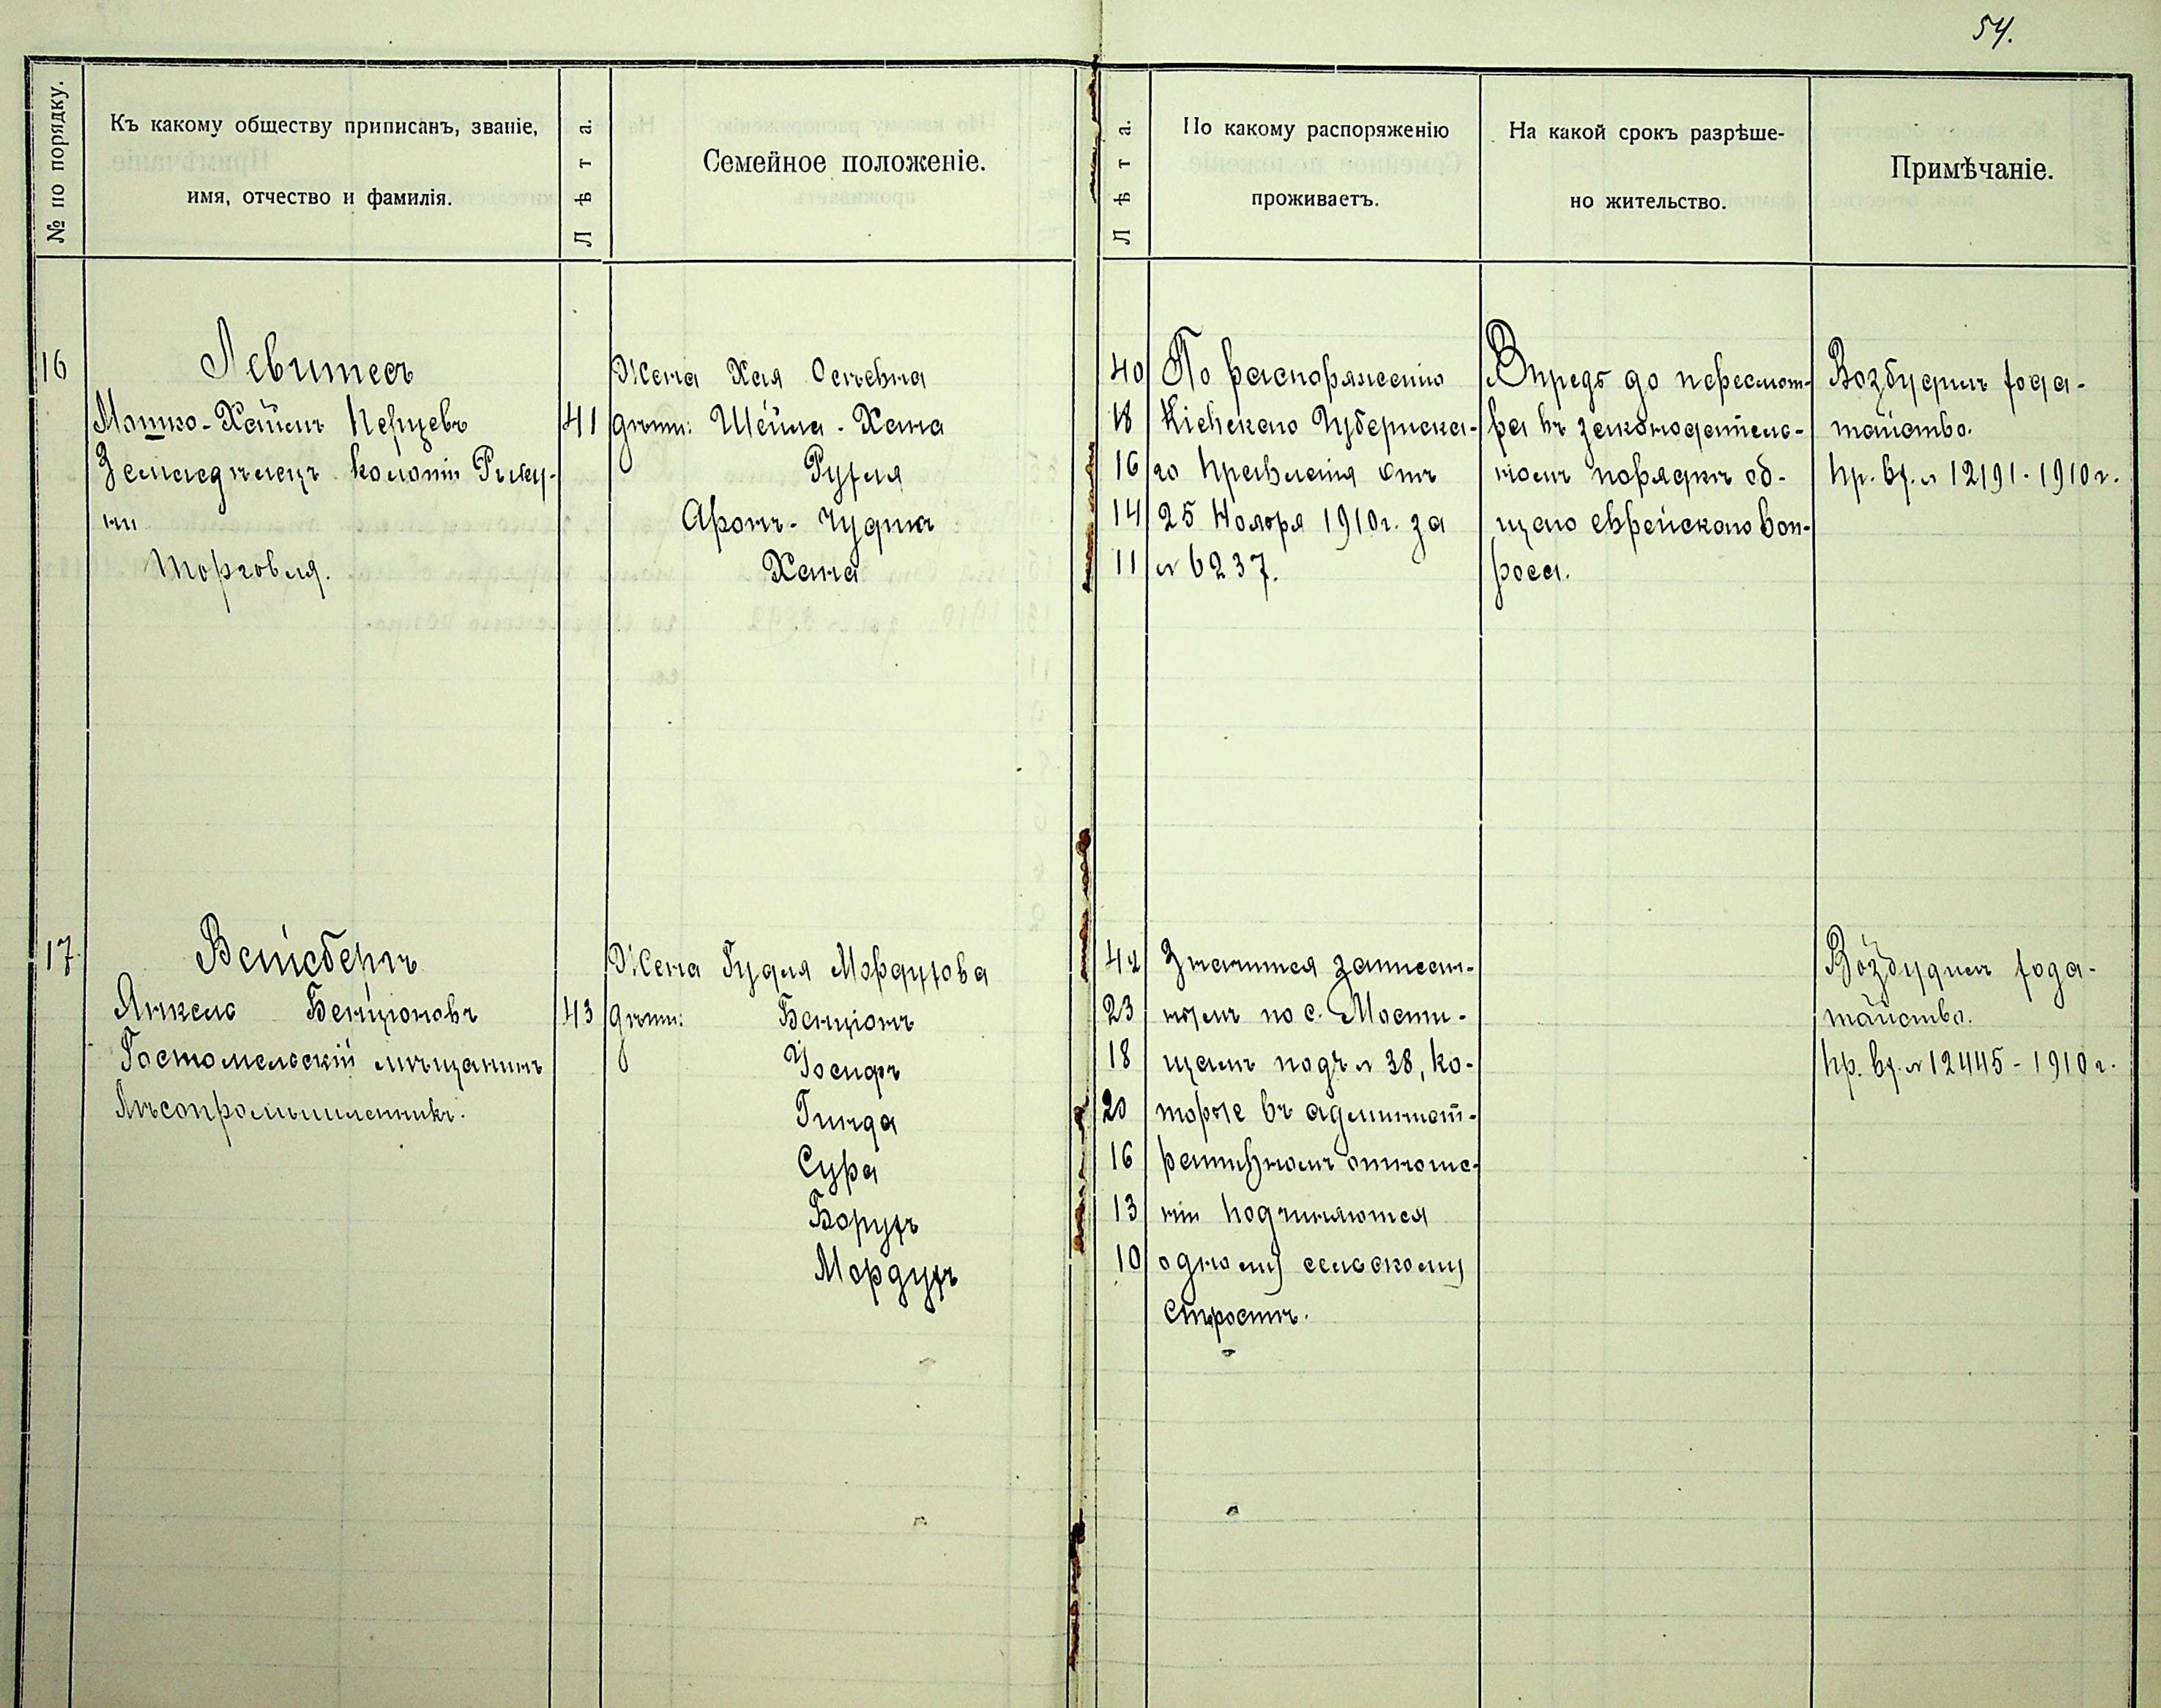 54.
№ по порядку.
Къ какому обществу приписанъ, званіе,
имя, отчество и фамилія.
Лѣта.
Семейное положеніе.
Лѣта.
По какому распоряженію
проживаетъ.
На какой срокъ разрѣше-
но жительство.
Примѣчаніе.
16
Левитесъ
Мошко-Хаимъ Перцевъ
Земледѣлецъ колоніи
ни
Торговля.
41
Жена Хая Осеевна
дѣти: Шейна-Хана
Рухля
Аронъ-Чудикъ
Хана
40
18
16
14
11
По распоряженію
Кіевскаго Губернска-
го Правленія отъ
25 Ноября 1910г. за
№ 6237.
Впредь до пересмот-
ра въ законодатель-
номъ порядкѣ об-
щаго еврейскаго воп-
роса.
Возбудилъ хода-
тайство.
Пр. вх. № 12191-1910г.
17
Вейсбергъ
Янкель Бенціоновъ
Гостомельскій мѣщанинъ
Лѣсопромышленникъ.
43
Жена Гудля Мордухова
дѣти: Бенціонъ
Іосифъ
Гинда
Сура
Борухъ
Мордухъ
42
23
18
20
16
13
10
Значится записан-
нымъ по с. Мости-
щамъ подъ № 38, ко-
торые въ админист-
ративномъ отноше-
ніи подчиняются
одному сельскому
Старостѣ.
Возбудилъ хода-
тайство.
Пр. вх. № 12445-1910г.